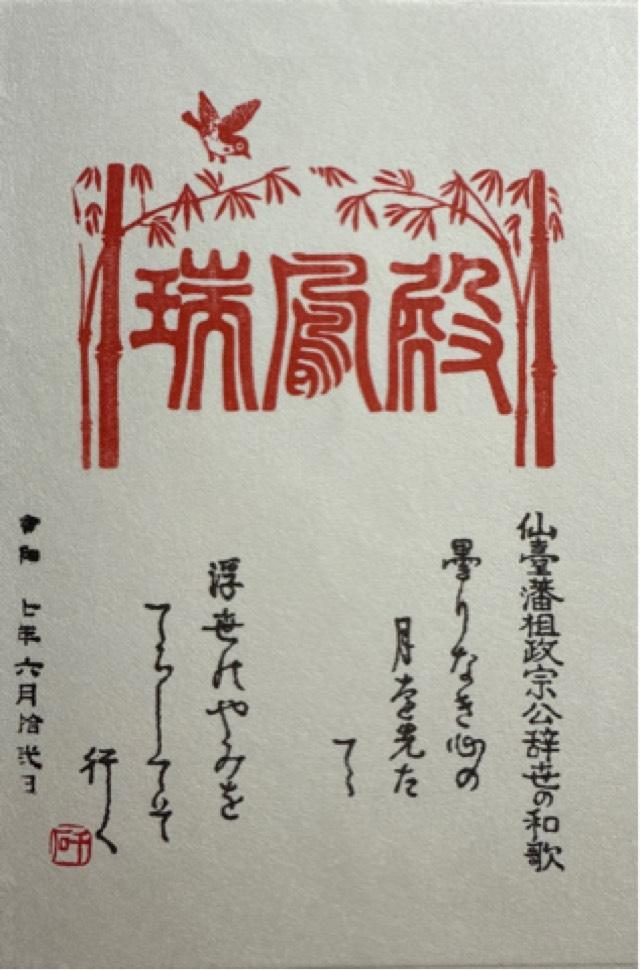 瑞鳳殿
仙臺藩祖政宗公辞世の和歌
曇りなき心の
月を先た
てゝ
浮世のやみを
てらしてそ
行く
令和 七年六月拾弐日